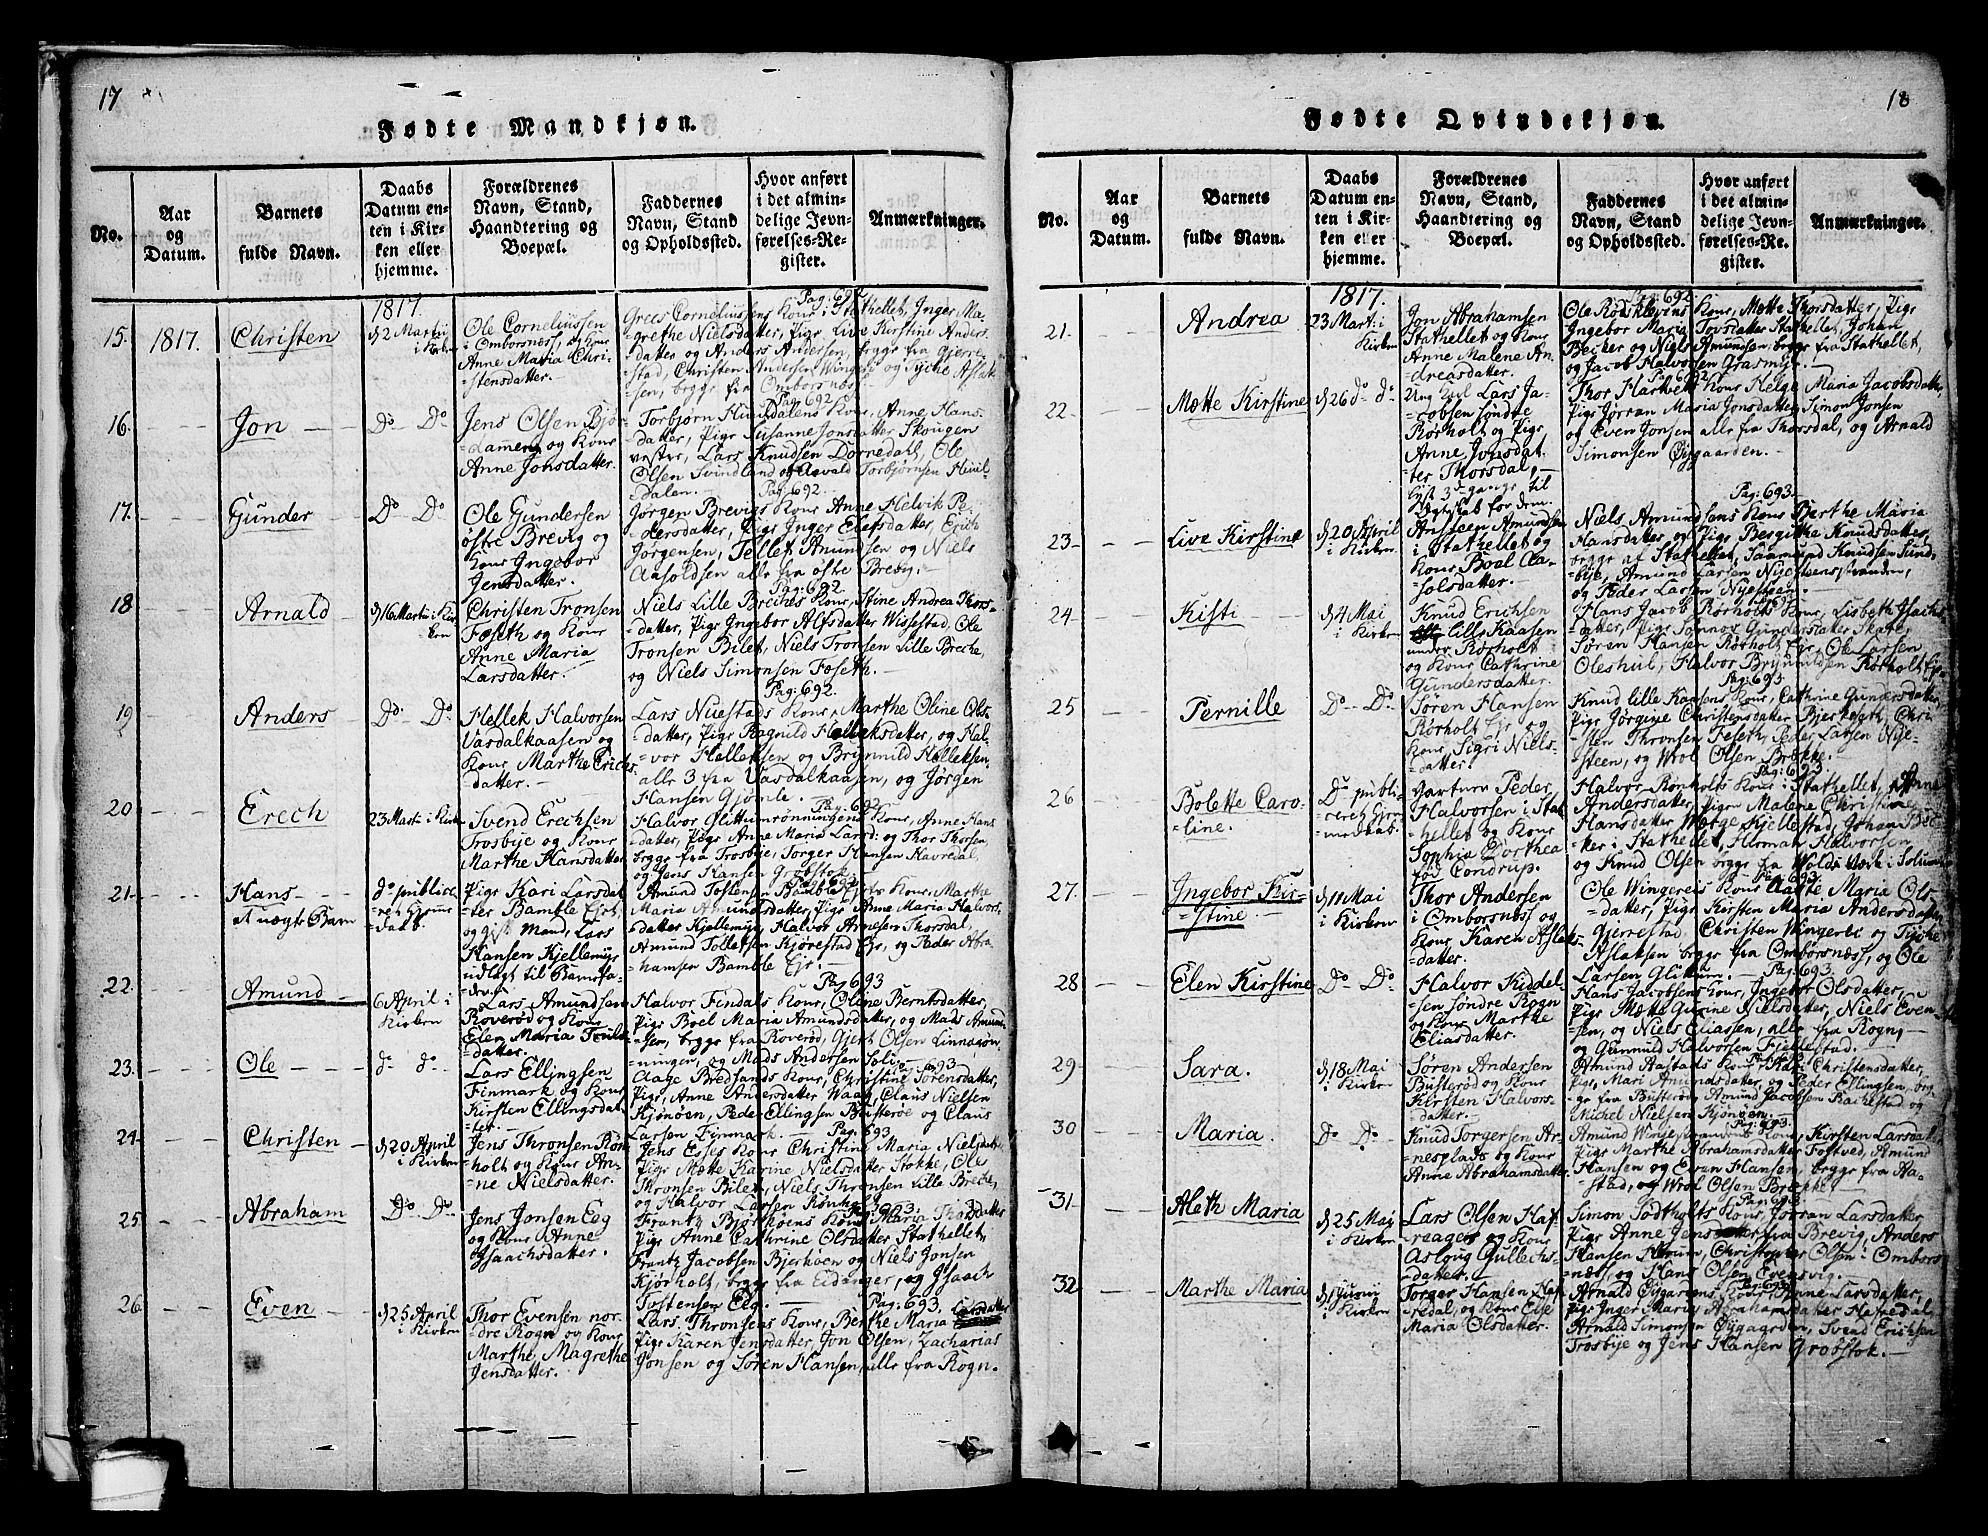 17
Fødte Mandkjøn.
No.
Aar
og
Datum.
Barnets
fulde Navn.
Daabs
Datum en-
ten i Kir-
ken eller
hjemme.
Forældrenes
Navn, Stand,
Haandtering og
Boepæl.
Faddernes
Navn, Stand
og Opholdssted.
Hvor anført
i det almin-
delige Jevn-
førelses-Re-
gister.
Anmærkninger.
1817.
15.
1817.
Christen
d 2 Martii
i Kirken
Ole Corneliussen
i Omborsnæs, og Kone
Anne Maria Chri-
stensdatter.
Pag: 692
Grees Corneliussens Kone i Stathellet, Inger Ma-
grethe Nielsdatter, Pige Live Kirstine Anders-
datter og Anders Andersen, begge fra Gjerre-
stad, Christen Andersen Wingerei og Tyche Aslak
sen, begge fra Omborsnæs
16.
Jon
Do Do
Jens Olsen Bjo-
dammen og Kone
Anne Jonsdatter.
Pag: 692
Torbjørn Hunsdalens Kone, Anne Hans-
datter, Pige Susanne Jonsdatter Skougen
vester, Lars Knudsen Dornedalt, Ole
Olsen Svindland og Aavald Torbjørnsen Hunl-
dalen.
17.
Gunder
Do Do
Ole Gundersen
østre Brevig og
Kone Ingebor
Jensdatter.
Pag: 692.
Jørgen Brevigs Kone Anne Helvik Pe-
dersdatter, Pige Inger Elefsdatter, Erich
Jørgensen, Tellef Amundsen og Niels
Aasoldsen alle fra østre Brevig.
18
Arnald
d 16 Marti i Kir-
ken
Christen Tronsen
Foseth og Kone
Anne Maria
Larsdatter.
Pag: 692
Niels Lille Breches Kone, Stine Andrea Thors-
datter, Pige Ingebor Alfsdatter Wissestad, Ole
Tronsen Bilet, Niels Tronsen Lille Breche,
og Niels Simonsen Foseth.
19
Anders
Do Do
Hellek Halvorsen
Vasdalkaasen og
Kone Marthe Erichs
datter.
Pag: 692.
Lars Nuestads Kone, Marthe Oline Ols-
datter, Pige Ragnild Halleksdatter, og Hal-
vor Helleksen og Brynnild Helleksen
alle 3 fra Vasdalkaasen, og Jørgen
Hansen Gjømle.
20
Erech
23 Marti i Kirken
Svend Erechsen
Trosbye og Kone
Marthe Hansdatter
Pag: 692
Halvor Glittumrønningens Kone, Anne Hans
datter, Pige Anne Maria Larsd: og Thor Thorsen
begge fra Trosbye, Torger Hansen Havredal,
og Jens Hansen Grobstok
21.
Hans
et uægte Barn
do publice
ret Hjemme
Daab.
Pige Kari Larsdat-
ter Bamble Ejr,
og gift Mand, Lars
Hansen Kjellemyr
udlagt til Barnefa-
der.
Amund Tostensen Bamble Ejrs Kone, Marthe
Maria Amundsdatter, Pige Anne Maria Halvors
datter Kjellemyr, Halvor Arnesen Thorsdal,
Amund Tollefsen Kjørestad Ejr, og Peder Abra
hamsen Bamble Ejr.
22.
Amund
6 April i
Kirken
Lars Amundsen
Roverød og Kone
Elen Maria
datter.
Pag: 693
Halvor Findals Kone, Oline Berntsdatter,
Pige Boel Maria Amundsdatter, og Mads Amund-
sen, begge fra Roverød, Gjert Olsen Linnerøn-
ningen, og Mads Andersen Solie
23.
Ole
do do
Lars Ellingsen
Finmark og Kone
Kirsten Ellingsdat-
ter.
693
Aage Bredsands Kone, Christine Sørensdatter,
Pige, Anne Andersdatter Waag, Claus Nielsen
Kjønøen, Peder Ellingsen Busterøe og Claus
Larsen Finmark.
24
Christen
d 20 April
i Kirken
Jens Thronsen Røn-
holt og Kone An-
ne Nielsdatter.
Pag: 693
Jens Esses Kone Christine Maria Nielsdatter
Pige Mette Karine Nielsdatter Stokke, Ole
Thronsen Bilet, Niels Thronsen Lille Breche,
og Halvor Larsen Rønholt
25
Abraham
Do Do
Jens Jonsen Eeg
og Kone Anne
Isaachsdatter.
Pag: 693.
Frantz Bjørkøens Kone Maria Thorsdatter
Pige Anne Cathrine Olsdatter Stathellet,
Frantz Jacobsen Bjerkøen og Niels Jonsen
Kjørholt, begge fra Eidanger, og Isaach
Tostensen Eeg.
26
Even
d 25 April
i Kirken
Thor Evensen nor-
dre Rogn og Kone
Marthe Magrethe
Jensdatter.
Pag: 693.
Lars Thronsens Kone, Berthe Maria Larsdatter
Pige Karen Jensdatter, Jon Olsen, Zacharias
Jonsen og Søren Hansen, alle fra Rogn.
18
Fødte Qvindekjøn.
No.
Aar
og
Datum.
Barnets
fulde Navn.
Daabs
Datum en-
ten i Kir-
ken eller
hjemme.
Forældrenes
Navn, Stand,
Haandtering og
Boepæl.
Faddernes
Navn, Stand
og Opholdssted.
Hvor anført
i det almin-
delige Jevn-
førelses-Re-
gister.
Anmærkninger.
1817.
21.
Andrea
23 Mart: i
Kirken
Jon Abrahamsen
Stathellet og Kone
Anne Malene An-
dreasdatter.
Pag: 692
Ole Rødsklevens Kone, Mette Thorsdatter, Pige
Ingebor Maria Tovsdatter Stathellet, Johan
Becker og Niels Amundsen, begge fra Stathellet,
og Jacob Halvorsen Grasmyr.
22
Mette Kirstine
d 26 do do
Ung Karl Lars Ja-
cobsen søndre
Rørholt og Pige
Anne Jonsdat-
ter Thorsdal,
lyst 3de gange til
Ægteskab for dem.
Pag: 692
Thor Harvets Kone Helge Maria Jacobsdatter,
Pige Jørran Maria Jonsdatter, Simon Jonsen
og Even Jonsen alle fra Thorsdal, og Arnald
Simonsen Øygaarden.
23
Live Kirstine
d 20 April
i Kirken
Ansteen Amundsen
i Stathellet og
Kone Boel Aa-
solsdatter.
Pag: 693.
Niels Amundsens Kone Berthe Maria
Hansdatter og Pige Bergithe Knudsdatter,
begge af Stathellet, Saamund Knudsen Sund-
bye, Amund Larsen Nysteensstranden,
og Peder Larsen Nyesteen.
24
Kisti
d 4 Mai
i Kirken
Knud Erichsen
lille Kaasen
under Rørholt
og Kone Cathrine
Gundersdatter.
Hans Jacob Rørholts Kone, Lisbeth Isachs-
datter, Pige Sønnov Gundersdatter Skate,
Søren Hansen Rørholt Ejr, Ole Larsen
Oleshul, Halvor Brynnildsen Rørholt Ejr.
25
Pernille
Do Do
Søren Hansen
Rørholt Ejr og
Kone, Sigri Niels-
datter.
Pag: 693
Knud lille Kaasens Kone, Cathrine Gundersdatter,
Pige Jørgine Christensdatter Bjerkeseth, Chri-
sten Thronsen Feseth, Peder Larsen Nye-
steen, og Wrol Olsen Brekke.
26
Bolette Caro-
line.
Do publi-
ceret Hjem-
medaab.
Vartum Peder
Halvorsen i Stat-
hellet og Kone
Sophia Dorthea
fød Condrup.
Pag: 693
Halvor Rønholts Kone i Stathellet, Anne
Andersdatter, Pige Malene Christine
Hansdatter Werge, Kjellestad, Johan Bec-
ker i Stathellet, Herman Halvorsen
og Knud Olsen begge fra Wolds Værk i Solum
27
Ingebor Kir-
stine.
d 11 Mai
i Kirken
Thor Andersen
i Omborsnæs og
Kone Karen Aslaks-
datter.
Pag: 693.
Ole Wingereis Kone Aaste Maria Ols-
datter, Pige Kirsten Maria Andersdatter
Gjerrestad Christen Wingerei og Tyche
Aslaksen begge fra Omborsnæs, og Ole
Larsen Glittum.
28
Elen Kirstine
Do Do
Halvor Kiddel-
sen søndre Rogn
og Kone Marthe
Eliasdatter.
Pag: 693.
Hans Jacobsens Kone, Ingebor Olsdatter,
Pige Mette Gurine Nielsdatter, Niels Even-
sen, og Niels Eliassen, alle fra Rogn,
og Gunnuld Halvorsen Fjellestad.
29
Sara.
d 18 Mai
i Kirken
Søren Andersen
Busterød og Kone
Kirsten Halvors-
datter.
Amund Aastads Kone, Kari Christensdatter,
Pige, Mari Amundsdatter, og Peder Ellingsen, beg-
ge fra Busterød, Amund Jacobsen Rachestad og
Michel Nielsen Kjønøen.
30
Maria.
Do Do
Knud Torgersen Ar-
nesplads og Kone
Anne Abrahamsdatter
Pag: 693.
Amund Wingestrandens Kone, Kirsten Larsdatter
Pige Marthe Abrahamsdatter Fostved, Amund
Hansen og Even Hansen, begge fra Aa-
stad, og Wrol Olsen Brekke
31
Aleth Maria
d 25 Mai
i Kirken
Lars Olsen Haf-
reager og Kone
Asloug Gullechs-
datter.
Pag: 693.
Simon Tødtholts Kone, Jørran Larsdatter,
Pige Anne Jensdatter fra Brevig, Anders
Hansen Hærum, Christopher Olsen i Ombors-
næs, og Hans Olsen Evensvig.
32
Marthe Maria
d 1 Junii
i Kirken
Torger Hansen Hæf-
redal, og Kone Else
Maria Olsdatter.
Pag: 693
Arnald Øygarens Kone Anne Larsdatter,
Pige Inger Maria Abrahamsdatter Hæfredal
Arnald Simonsen Øygaarden, Svend Erichsen
Trosbye og Jens Hansen Grobstok.